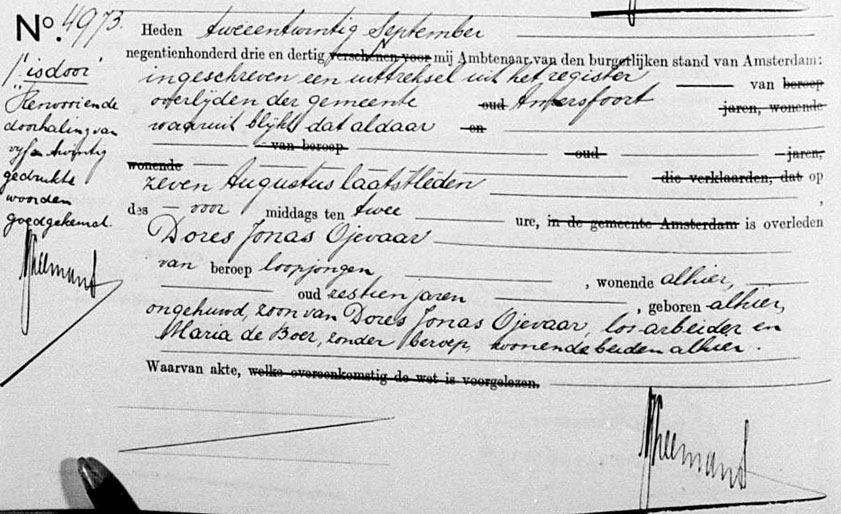 No. 4973.
Heden tweeentwintig September
negentienhonderd drie en dertig verschenen voor mij Ambtenaar van den burgerlijken stand van Amsterdam:
ingeschreven een uittreksel uit het register van beroep
overlijden der gemeente oud Amersfoort jaren, wonende
waaruit blijkt dat aldaar en
van beroep oud jaren,
wonende
zeven Augustus laatstleden die verklaarden, dat op
des voor middags ten twee ure, in de gemeente Amsterdam is overleden
Dores Jonas Ojevaar
van beroep loopjongen, wonende alhier,
oud zestien jaren, geboren alhier,
ongehuwd, zoon van Dores Jonas Ojevaar, los arbeider en
Maria de Boer, zonder beroep, wonende beiden alhier.
Waarvan akte, welke overeenkomstig de wet is voorgelezen.
doorhaling van
vyf en twintig
gedrukte
woorden
goedgekeurd.